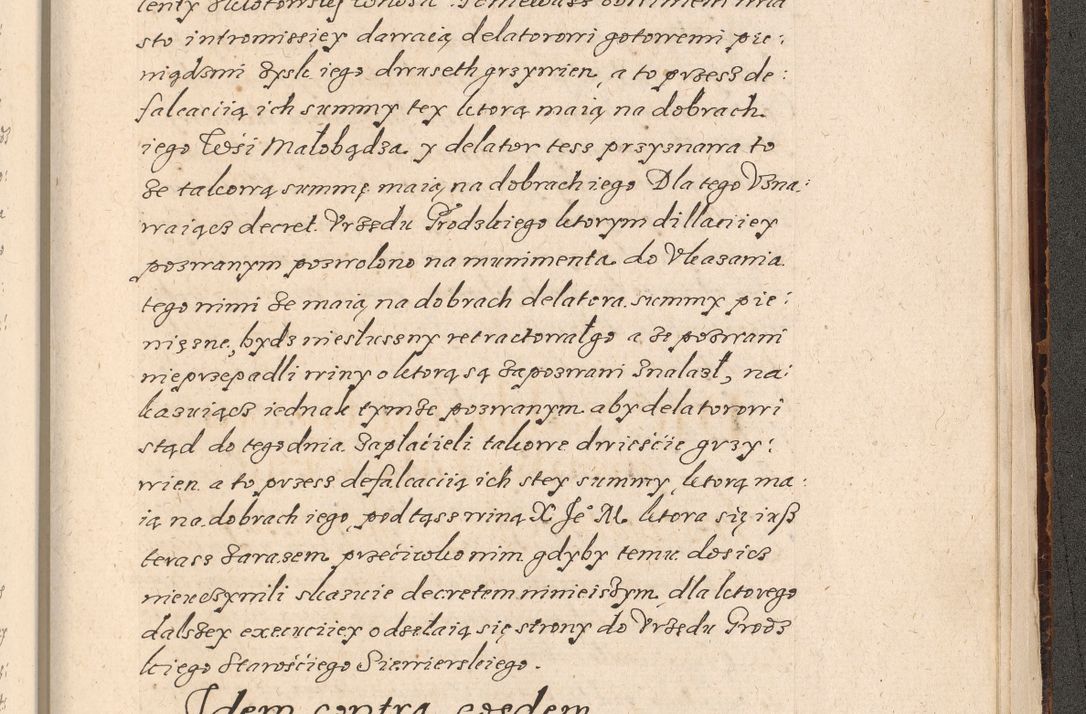 sto intromissiey dawaią delatorowi gotowemi pie:
niądzmi zysk iego dwuseth grzywien, a to przesz de:
falcacią ich summy tey ktorą maią na dobrach
iego Wsi Małobądza. y delator tesz przyznawa to
że takową summę maią na dobrach iego Dla tego Vzna:
waiącz decret Vrzędu Grodzkiego ktorym dillaciiey
pozwanym pozwolono na munimenta do Vkazania
tego nimi że maią na dobrach delatora summy pie:
niężne, bydz niesłuszny retractował go a że pozwani
nieprzepadli winy o ktorą są zapozwani znalazł, na:
kazuiącz iednak tymże pozwanym aby delatorowi
stąd do tegodnia zapłacieli takowe dwieście grzy:
wien a to przesz defalcacią ich stey summy, ktorą ma:
ią na dobrach iego, pod tąsz winą X Je° M. ktora się iusz
terasz zarazem przeciwko nim gdyby temu dosicz
nieuczynili skazuie decretem ninieiszym, dla ktorego
dalszey execuciiey odzełaią się strony do Vrzędu Grodz
kiego Starościego Siewierskiego.
Idem contra eosdem